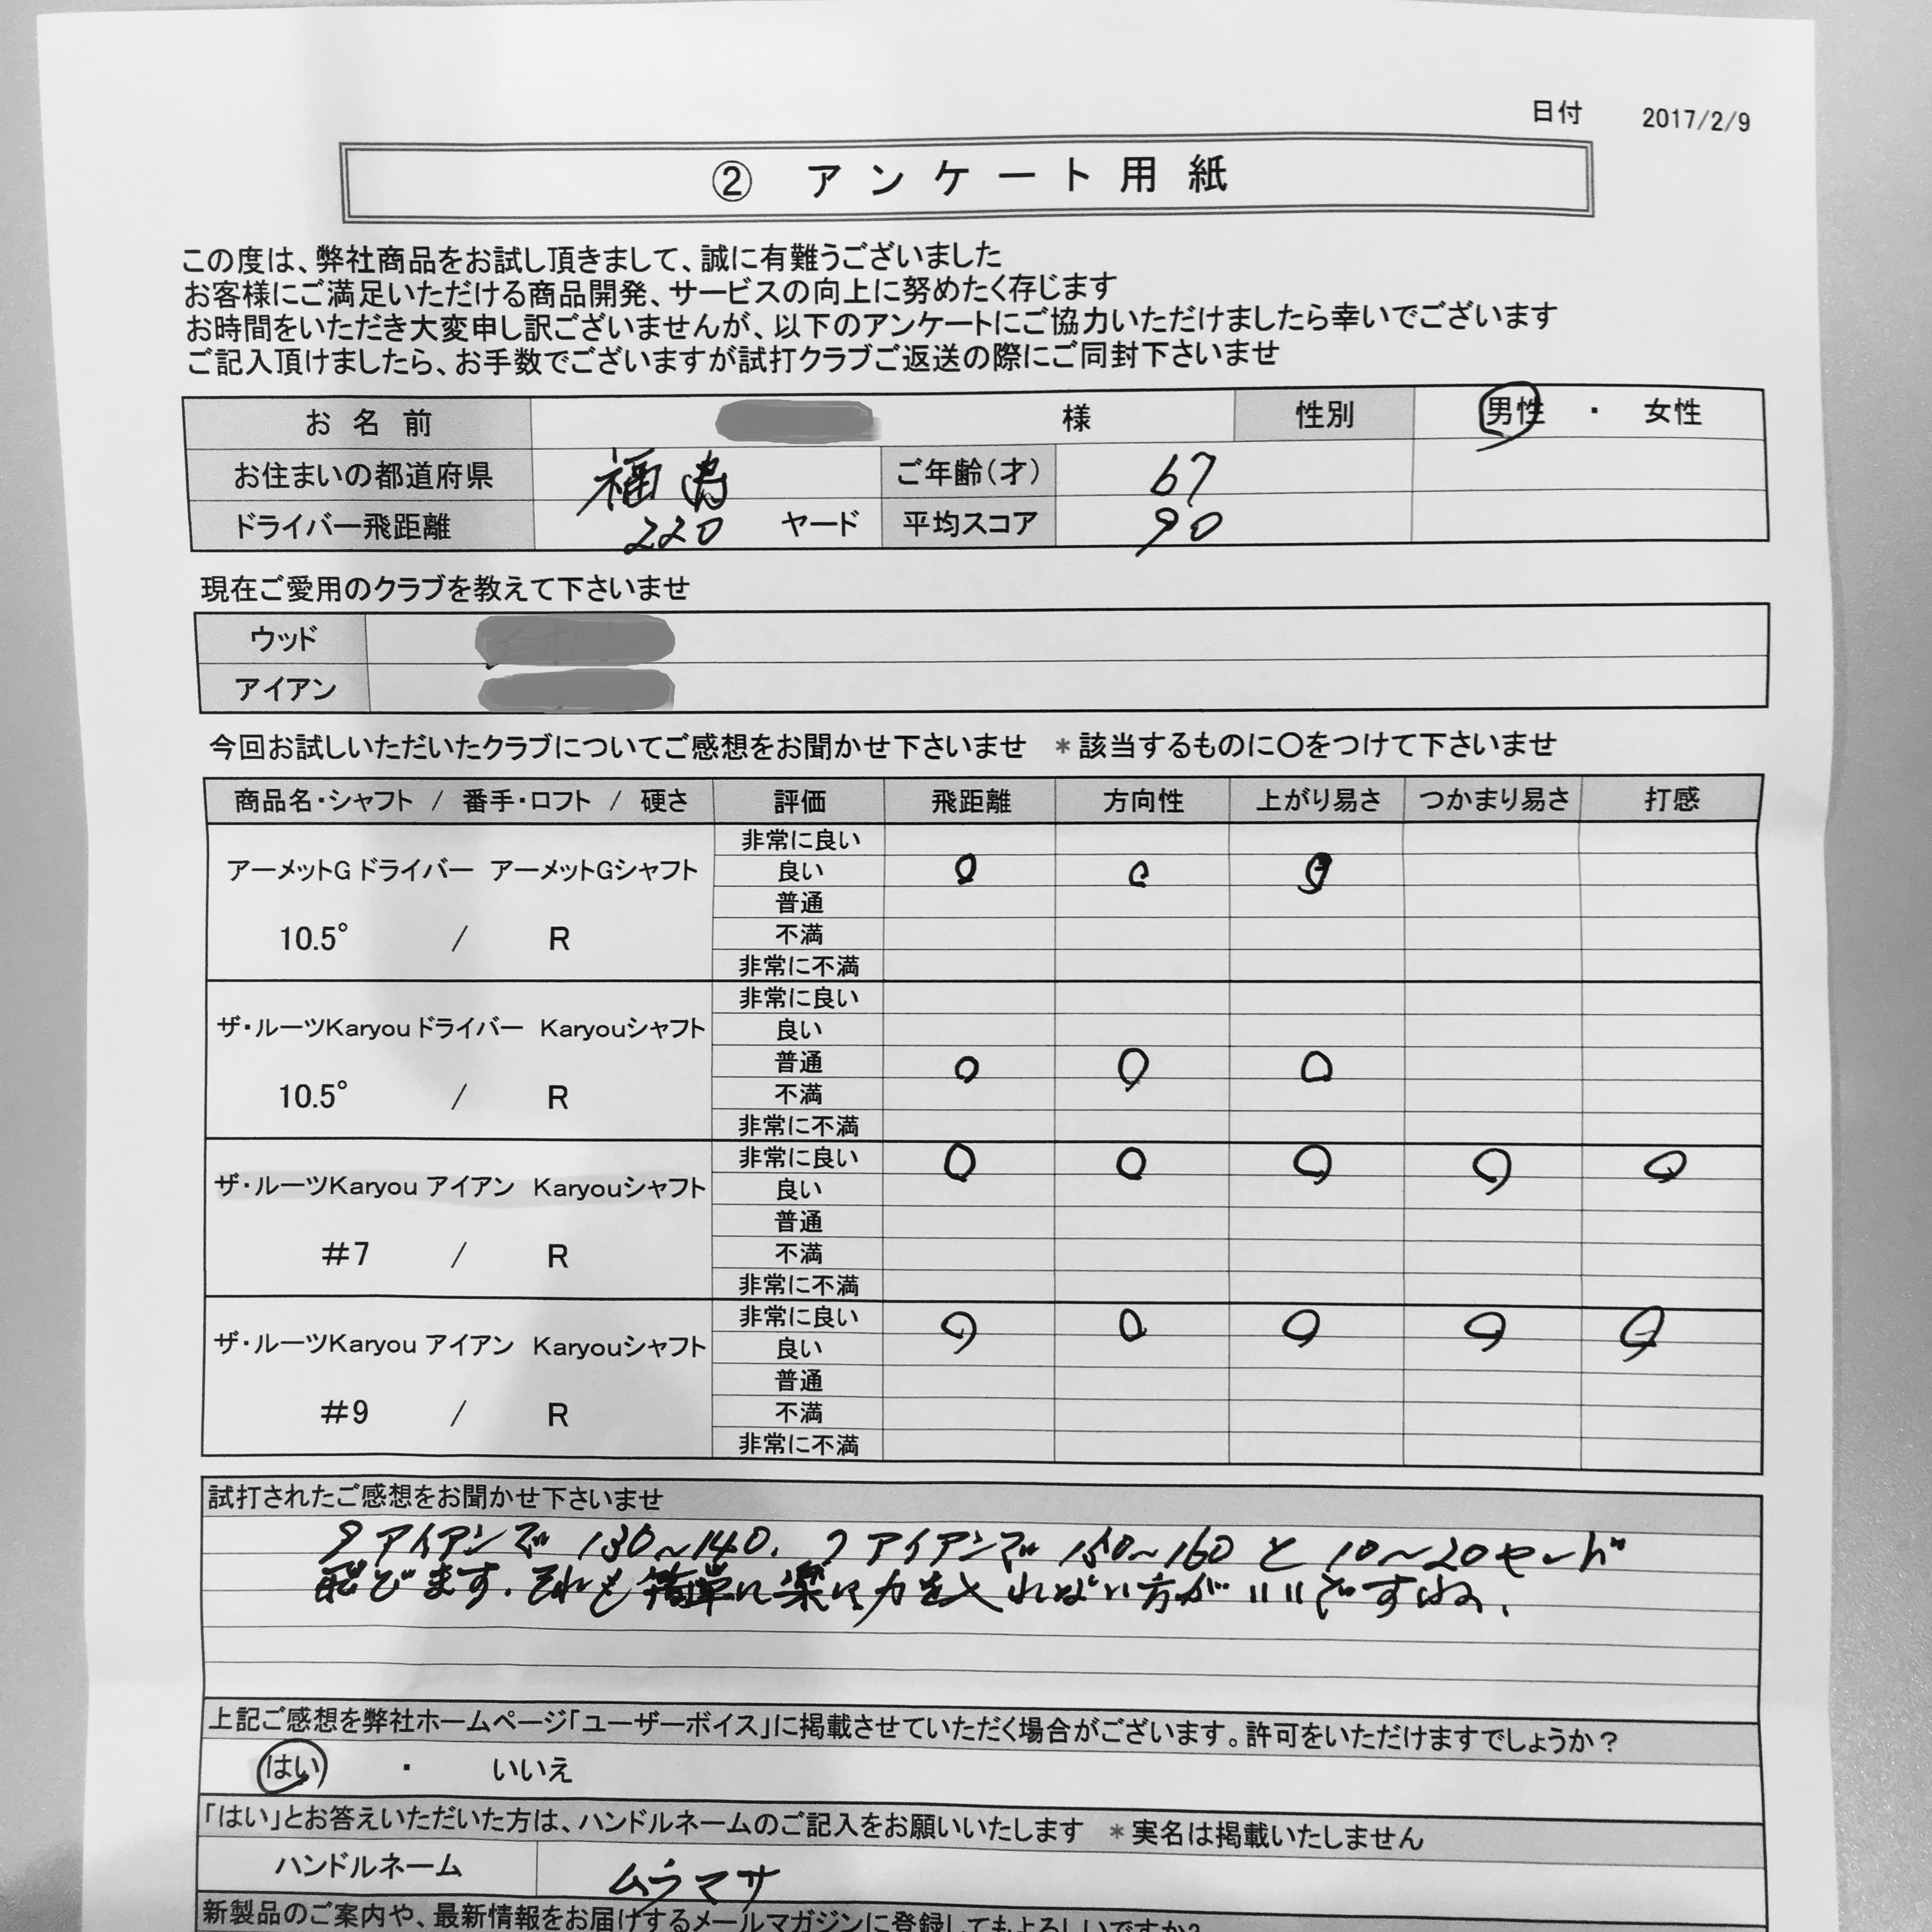 日付 2017/2/9
② アンケート用紙
この度は、弊社商品をお試し頂きまして、誠に有難うございました
お客様にご満足いただける商品開発、サービスの向上に努めたく存じます
お時間をいただき大変申し訳ございませんが、以下のアンケートにご協力いただけましたら幸いでございます
ご記入頂けましたら、お手数でございますが試打クラブご返送の際にご同封下さいませ
お名前 様 性別 男性 ・ 女性
お住まいの都道府県 福島 ご年齢(才) 67
ドライバー飛距離 220 ヤード 平均スコア 90
現在ご愛用のクラブを教えて下さいませ
ウッド
アイアン
今回お試しいただいたクラブについてご感想をお聞かせ下さいませ *該当するものに〇をつけて下さいませ
商品名・シャフト / 番手・ロフト / 硬さ 評価 飛距離 方向性 上がり易さ つかまり易さ 打感
非常に良い
アーメットG ドライバー アーメットGシャフト 良い
普通
10.5° / R 不満
非常に不満
非常に良い
ザ・ルーツKaryou ドライバー Karyouシャフト 良い
普通
10.5° / R 不満
非常に不満
非常に良い
ザ・ルーツKaryou アイアン Karyouシャフト 良い
普通
#7 / R 不満
非常に不満
非常に良い
ザ・ルーツKaryou アイアン Karyouシャフト 良い
普通
#9 / R 不満
非常に不満
試打されたご感想をお聞かせ下さいませ
9アイアンで130~140. 7アイアンで150~160と10~20ヤード
飛びます.それも簡単に楽に力を入れない方がいいですね、
上記ご感想を弊社ホームページ「ユーザーボイス」に掲載させていただく場合がございます。許可をいただけますでしょうか？
はい ・ いいえ
「はい」とお答えいただいた方は、ハンドルネームのご記入をお願いいたします *実名は掲載いたしません
ハンドルネーム ムラマサ
新製品のご案内や、最新情報をお届けするメールマガジンに登録してもよろしいですか?